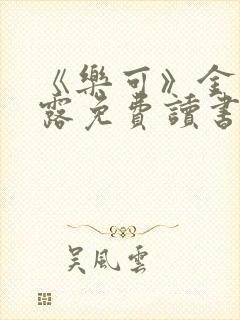 《樂可》全
露免費讀書
吳風雲